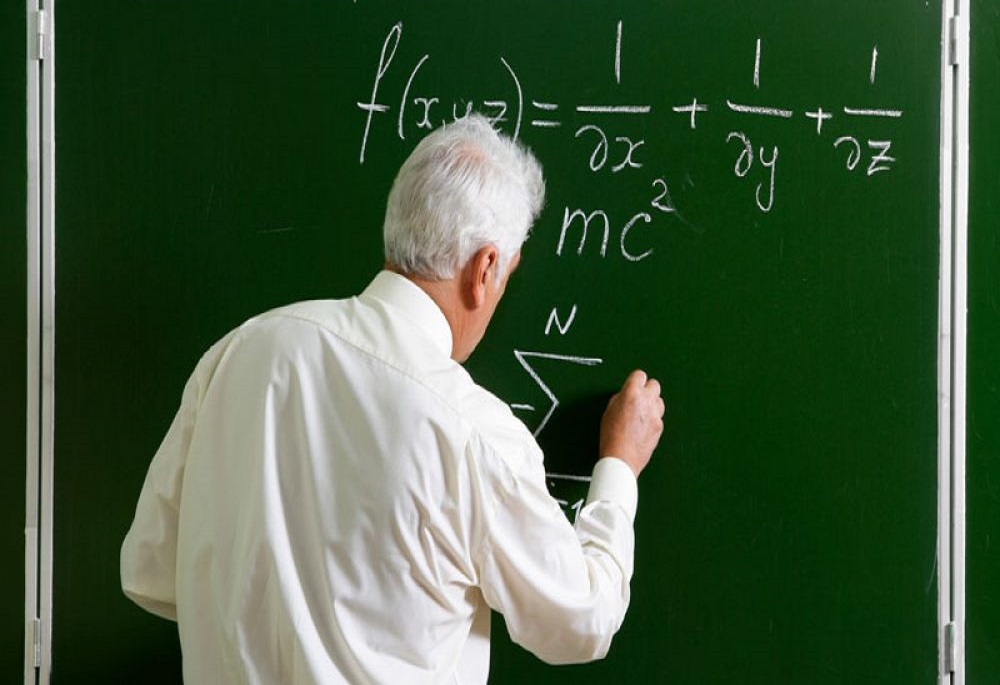 f(x,y,z) = 1/∂x + 1/∂y + 1/∂z
mc²
N
- Σ
=1